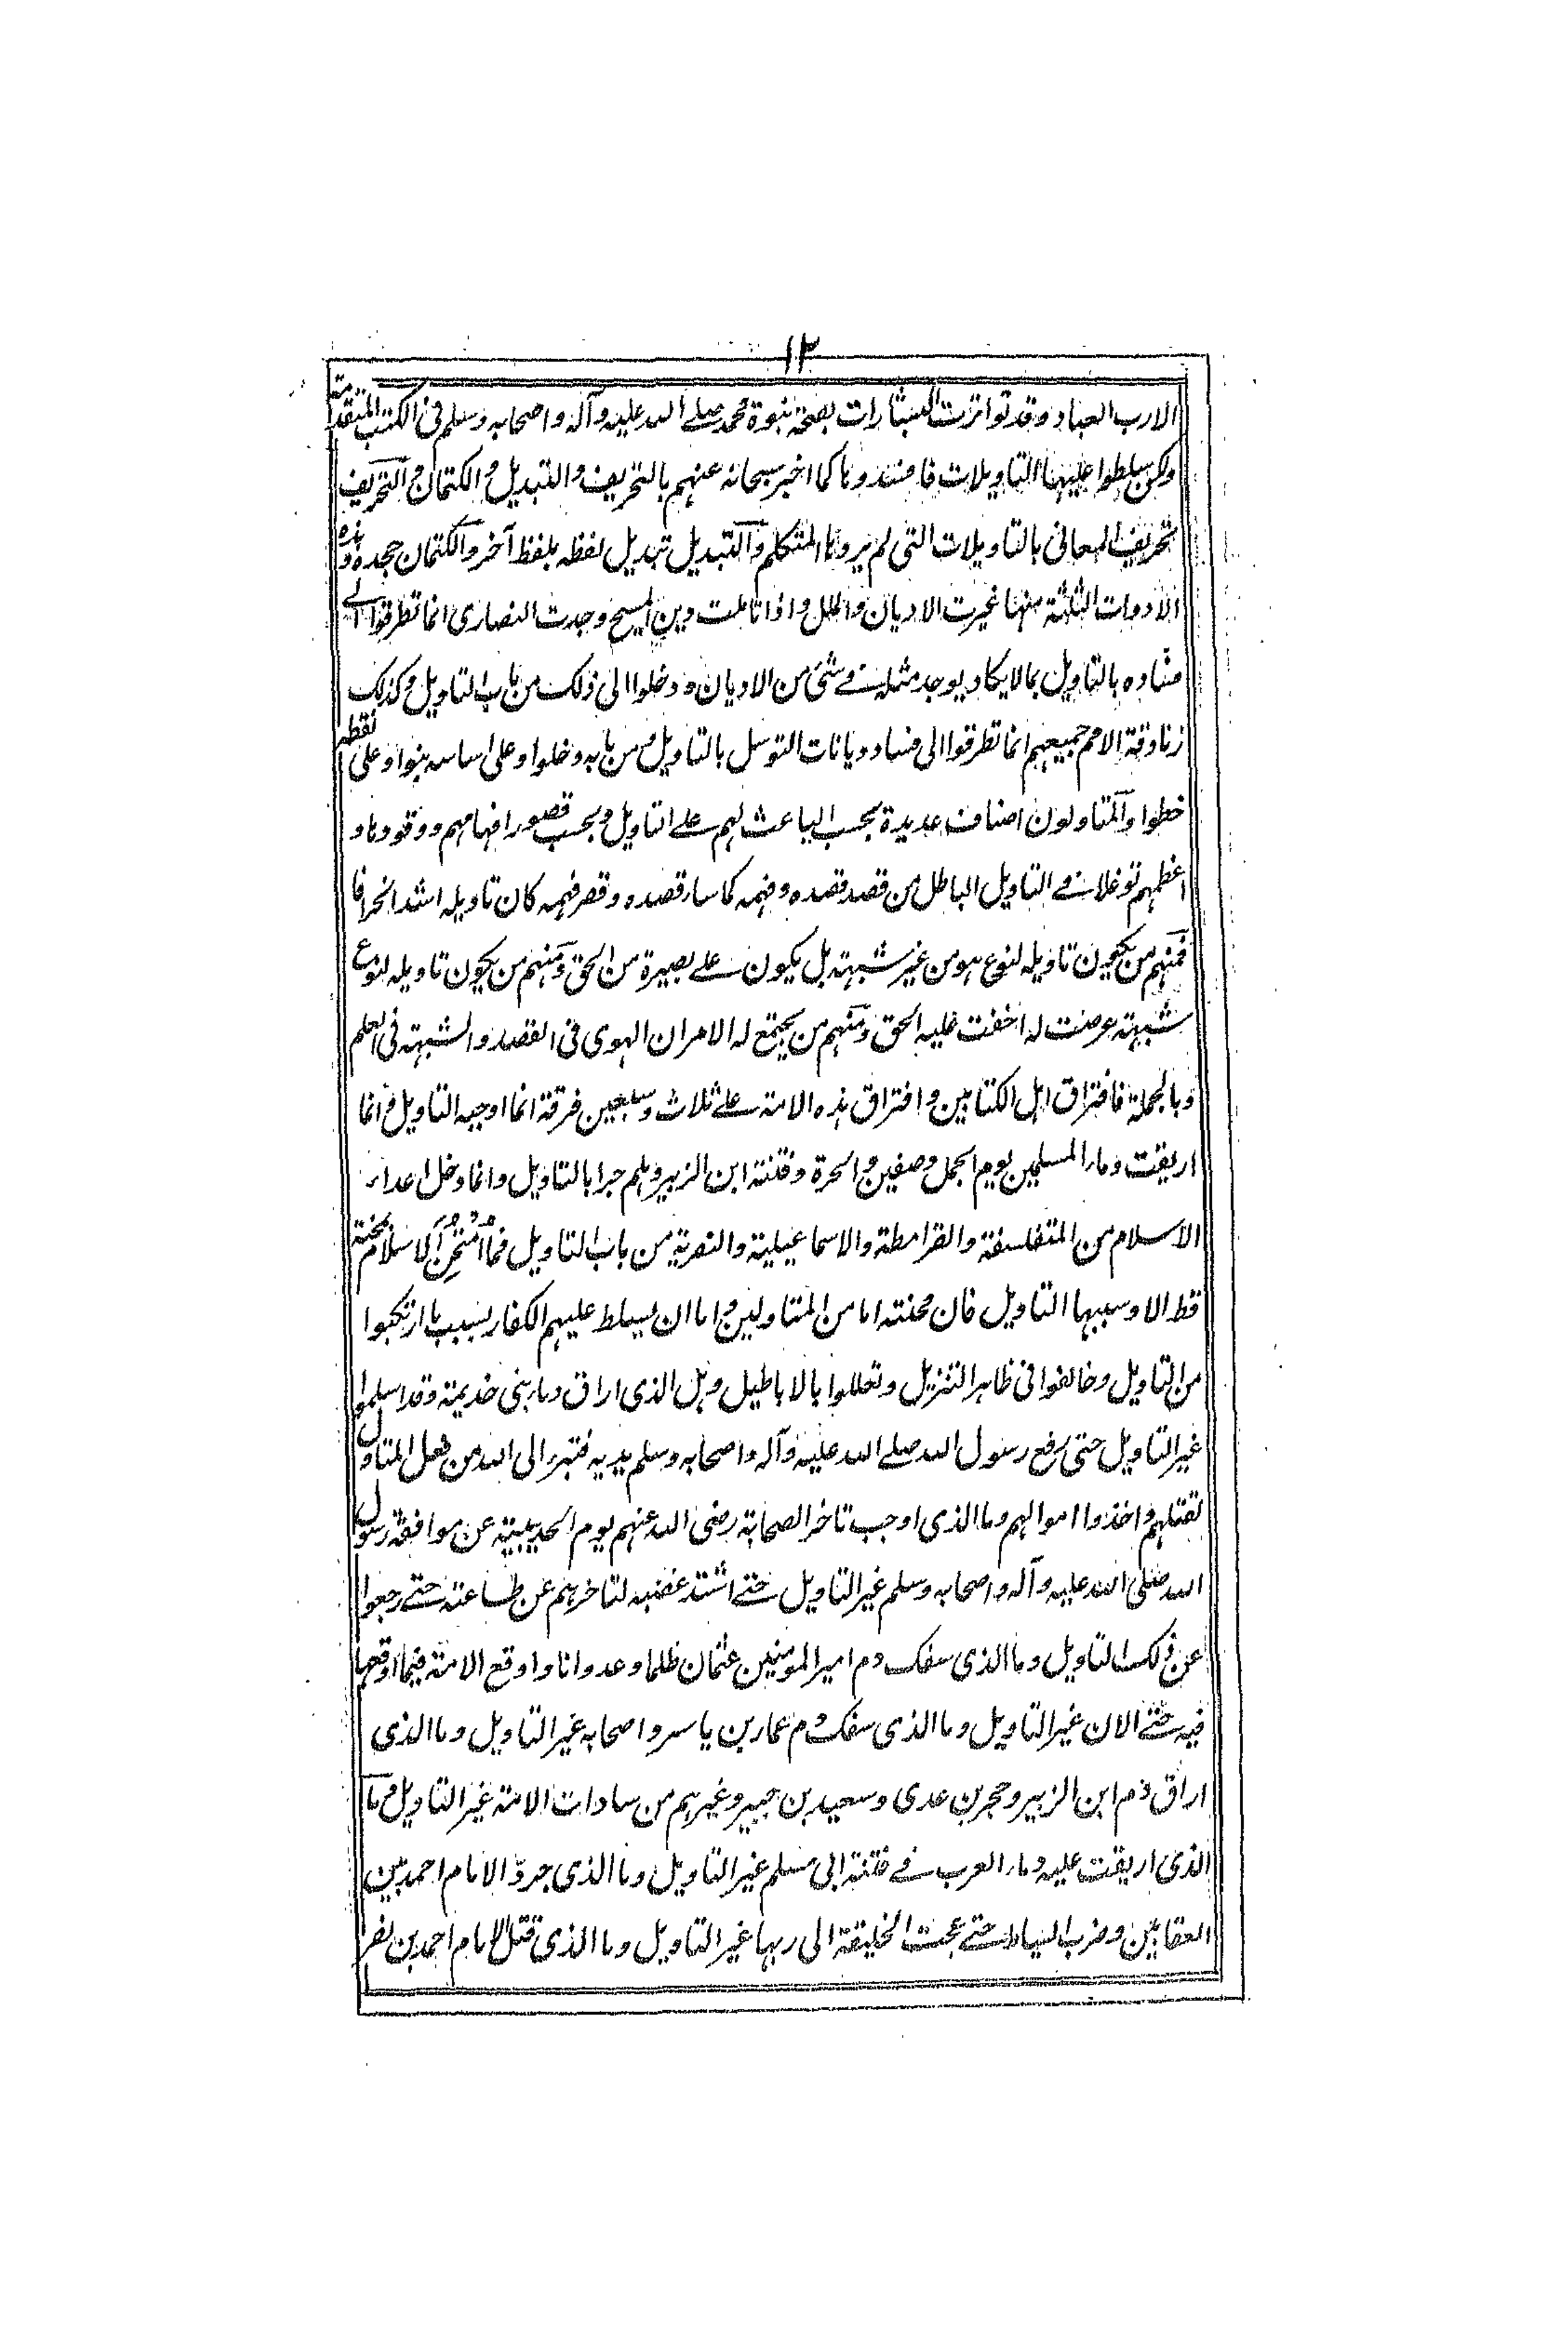 ١٢
الا رب العباد وقد تواترت البشارات بصحة نبوة محمد صلے الله عليه وآله واصحابه وسلم فى الكتب المتقدمة
ولكن سلطوا عليها التاويلات فافسدوها كما اخبر سبحانه عنهم بالتحريف والتبديل والكتمان والتحريف
تحريف المعانى بالتاويلات التى لم يردها المتكلم والتبديل تبديل لفظه بلفظ آخر والكتمان جحده وهذه
الادوات الثلثة منها غيرت الاديان والملل واذا تاملت دين المسيح وجدت النصارى انما تطرقوا الى
فساده بالتاويل بما لا يكاد يوجد مثله فے شئ من الاديان ودخلوا الى ذلك من باب التاويل وكذلك
زنادقة الامم جميعهم انما تطرقوا الى فساد ديانات التوسل بالتاويل ومن بابه دخلوا وعلى اساسه بنوا وعلى نقطه
خطوا والمتاولون اصناف عديدة بحسب الباعث لهم علے التاويل وبحسب قصور افهامهم ووفودها و
اعظمهم توغلا فے التاويل الباطل من قصد قصده وفهمه كما ساء قصده وقصر فهمه كان تاويله اشد انحرافا
فمنهم من يكون تاويله لنوع هو من غير شبهة بل يكون علے بصيرة من الحق ومنهم من يكون تاويله لنوع
شبهة عرضت له اخفت عليه الحق ومنهم من يجتمع له الامران الهوى فى القصد والشبهة فى العلم
وبالجملة فافتراق اهل الكتابين وافتراق هذه الامة علے ثلاث وسبعين فرقة انما اوجبه التاويل وانما
اريقت دماء المسلمين يوم الجمل وصفين والحرة وفتنة ابن الزبير وهلم جرا بالتاويل وانما دخل اعداء
الاسلام من المتفلسفة والقرامطة والاسماعيلية والنصرية من باب التاويل فما امتحن الاسلام بمحنة
قط الا وسببها التاويل فان محنته اما من المتاولين واما ان يسلط عليهم الكفار بسبب ما ارتكبوا
من التاويل وخالفوا فى ظاهر التنزيل وتعللوا بالاباطيل وهل الذى اراق دماء بنى خذيمة وقد اسلموا
غير التاويل حتى رفع رسول الله صلے الله عليه وآله واصحابه وسلم يديه فتبرء الى الله من فعل المتاول
لقتلهم واخذوا اموالهم وما الذى اوجب تاخر الصحابة رضى الله عنهم يوم الحديبية عن موافقة رسول
الله صلى الله عليه وآله واصحابه وسلم غير التاويل حتے اشتد غضبه لتاخرهم عن طاعته حتے رجعوا
عن ذلك التاويل وما الذى سفك دم امير المومنين عثمان ظلما وعدوانا واوقع الامة فيما اوقعها
فيه حتے الان غير التاويل وما الذى سفك دم عمار بن ياسر واصحابه غير التاويل وما الذى
اراق دم ابن الزبير وحجر بن عدى وسعيد بن جبير وغيرهم من سادات الامة غير التاويل وما
الذى اريقت عليه دماء العرب فے فتنة ابى مسلم غير التاويل وما الذى جرد الامام احمد بين
العقابين وضرب السياط حتے عجت الخليقة الى ربها غير التاويل وما الذى قتل الامام احمد بن نصر